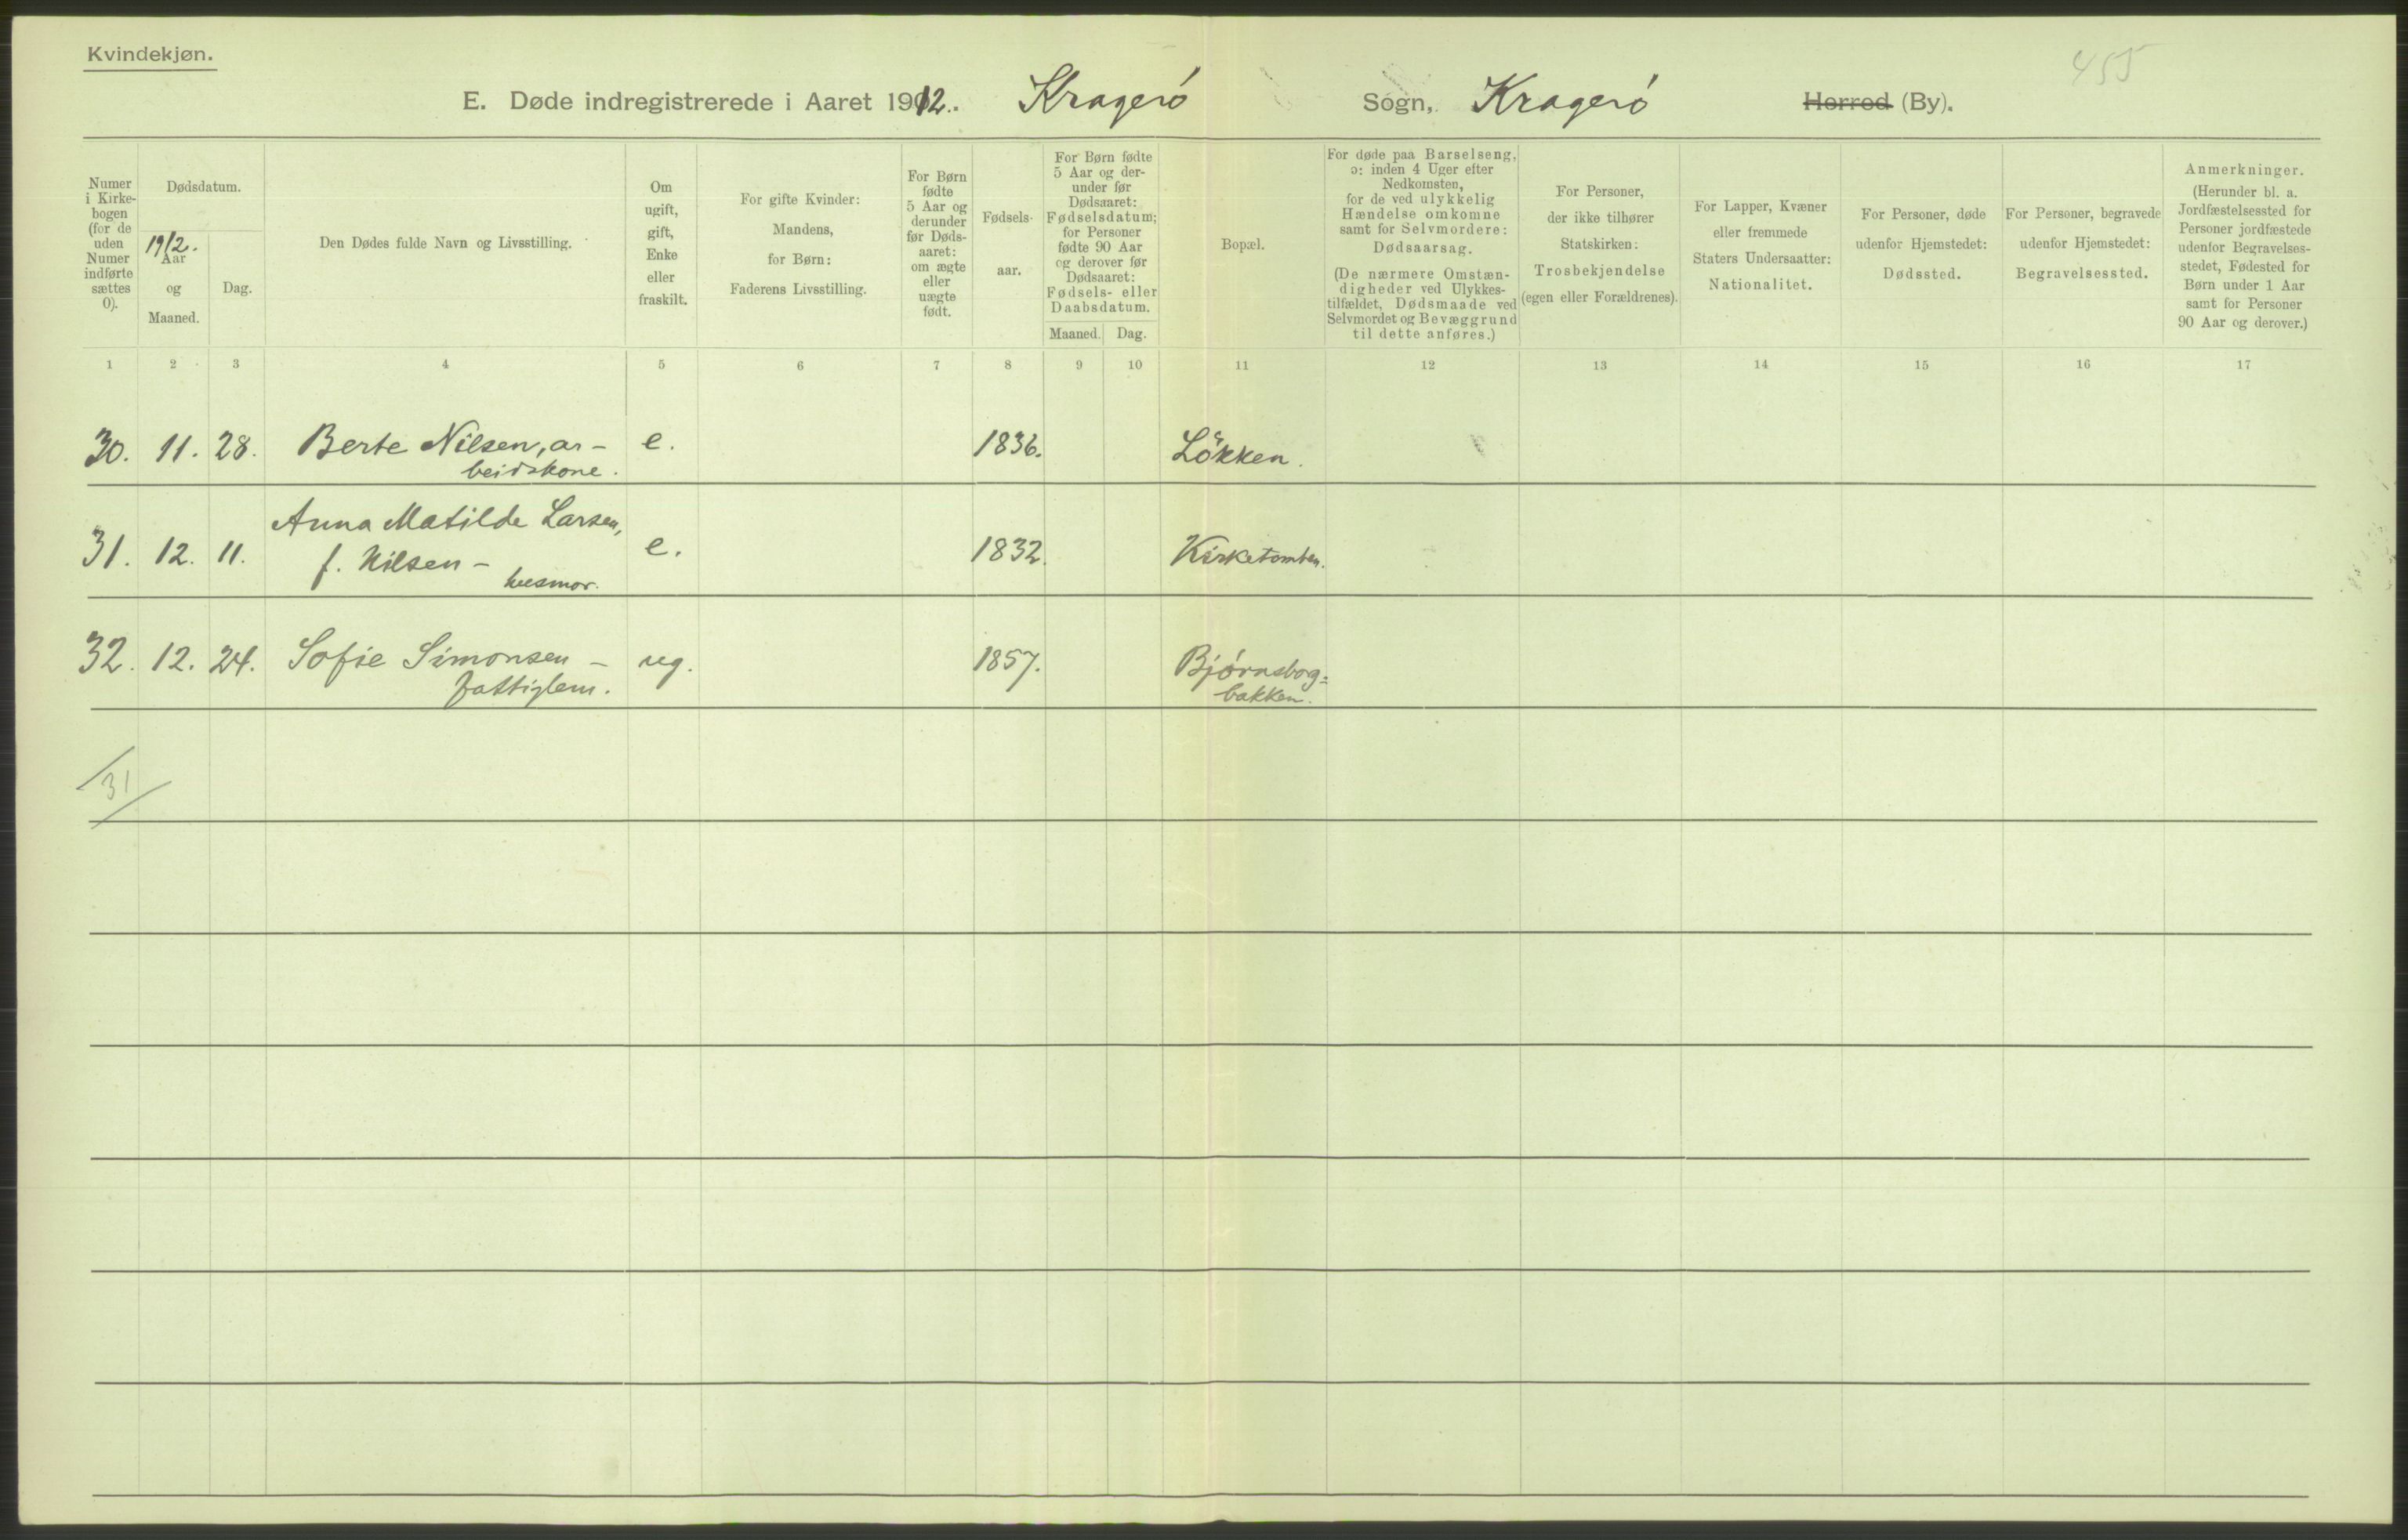 Kvindekjøn.
455
E. Døde indregistrerede i Aaret 1912. Kragerö Sogn, Kragerö Herred (By).
Numer
i Kirke-
bogen
(for de
uden
Numer
indførte
sættes
0).
Dødsdatum.
1912.
Aar
og
Maaned.
Dag.
Den Dødes fulde Navn og Livsstilling.
Om
ugift,
gift,
Enke
eller
fraskilt.
For gifte Kvinder:
Mandens,
for Børn:
Faderens Livsstilling.
For Børn
fødte
5 Aar og
derunder
før Døds-
aaret:
om ægte
eller
uægte
født.
Fødsels-
aar.
For Børn fødte
5 Aar og der-
under før
Dødsaaret:
Fødselsdatum;
for Personer
fødte 90 Aar
og derover før
Dødsaaret:
Fødsels- eller
Daabsdatum.
Maaned. Dag.
Bopæl.
For døde paa Barselseng,
ɔ: inden 4 Uger efter
Nedkomsten,
for de ved ulykkelig
Hændelse omkomne
samt for Selvmordere:
Dødsaarsag.
(De nærmere Omstæn-
digheder ved Ulykkes-
tilfældet, Dødsmaade ved
Selvmordet og Bevæggrund
til dette anføres.)
For Personer,
der ikke tilhører
Statskirken:
Trosbekjendelse
(egen eller Forældrenes).
For Lapper, Kvæner
eller fremmede
Staters Undersaatter:
Nationalitet.
For Personer, døde
udenfor Hjemstedet:
Dødssted.
For Personer, begravede
udenfor Hjemstedet:
Begravelsessted.
Anmerkninger.
(Herunder bl. a.
Jordfæstelsessted for
Personer jordfæstede
udenfor Begravelses-
stedet, Fødested for
Børn under 1 Aar
samt for Personer
90 Aar og derover.)
1 2 3 4 5 6 7 8 9 10 11 12 13 14 15 16 17
30. 11. 28. Berte Nilsen, ar- e. 1836. Lökken.
beidskone.
Anna Matilde Larsen,
31. 12. 11. f. Nilsen - e. 1832. Kirketomten.
husmor.
32. 12. 24. Sofie Simonsen - ug. 1857. Bjørnsborg=
fattiglem. bakken.
31